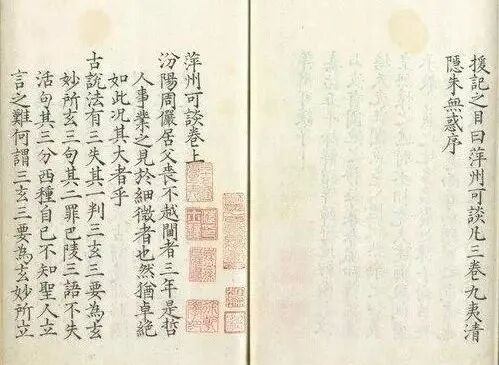 援記之目曰萍州可談凡三卷九夷清
隱朱無惑序
萍州可談卷上
汾陽周儼居父喪不越閫者三年是哲
人事業之見於細微者也然猶卓絶
如此况其大者乎
古說法有三失其一判三玄三要為玄
妙所玄三句其二罪巴陵三語不失
活句其三分西種自已不知聖人立
言之難何謂三玄三要為玄妙所立